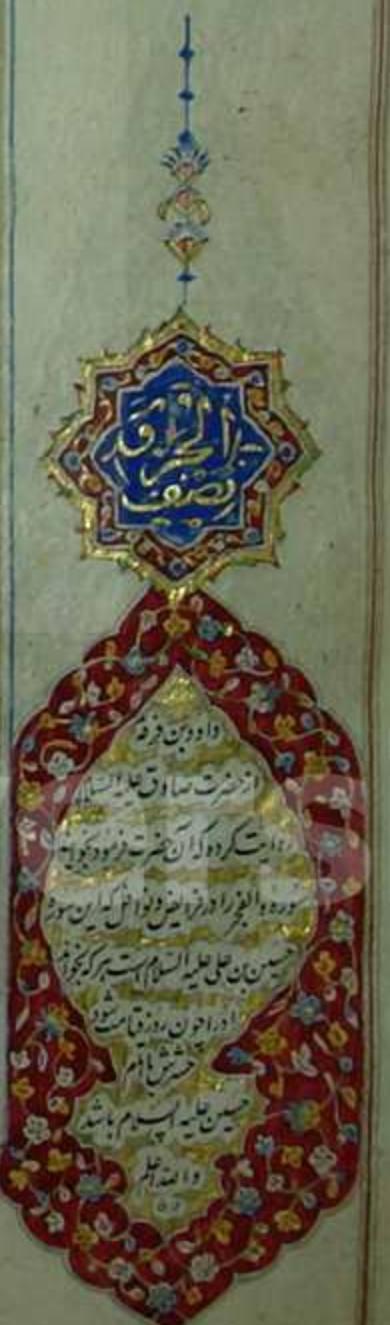 نصف الحزب
داود بن فرقد
از حضرت صادق علیه السلام
روایت کرده که آن حضرت فرمود بخوانید
سوره والفجر را در فرایض و نوافل که این سوره
حسین بن علی علیه السلام است هر که بخواند
او را چون روز قیامت شود
حشرش با امام
حسین علیه السلام باشد
والله اعلم